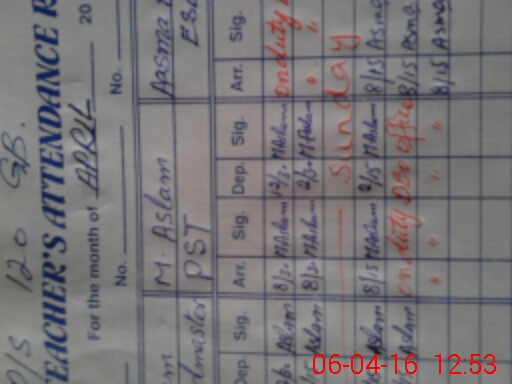 P/S 120 GB.
TEACHER'S ATTENDANCE R
For the month of APRIL 20
No. No.
M. Aslam Aasma
master PST ESE
Dep. Sig. Arr. Sig. Dep. Sig. Arr. Sig.
Aslam 8/30 MAslam 12/30 MAslam on duty
Aslam 8/30 MAslam 2/30 MAslam "
Sunday
Aslam 8/15 MAslam 2/15 MAslam 8/15 Asma
Aslam on duty Deo office 8/15 Asma
" " " " 8/15 Asma
06-04-16 12:53